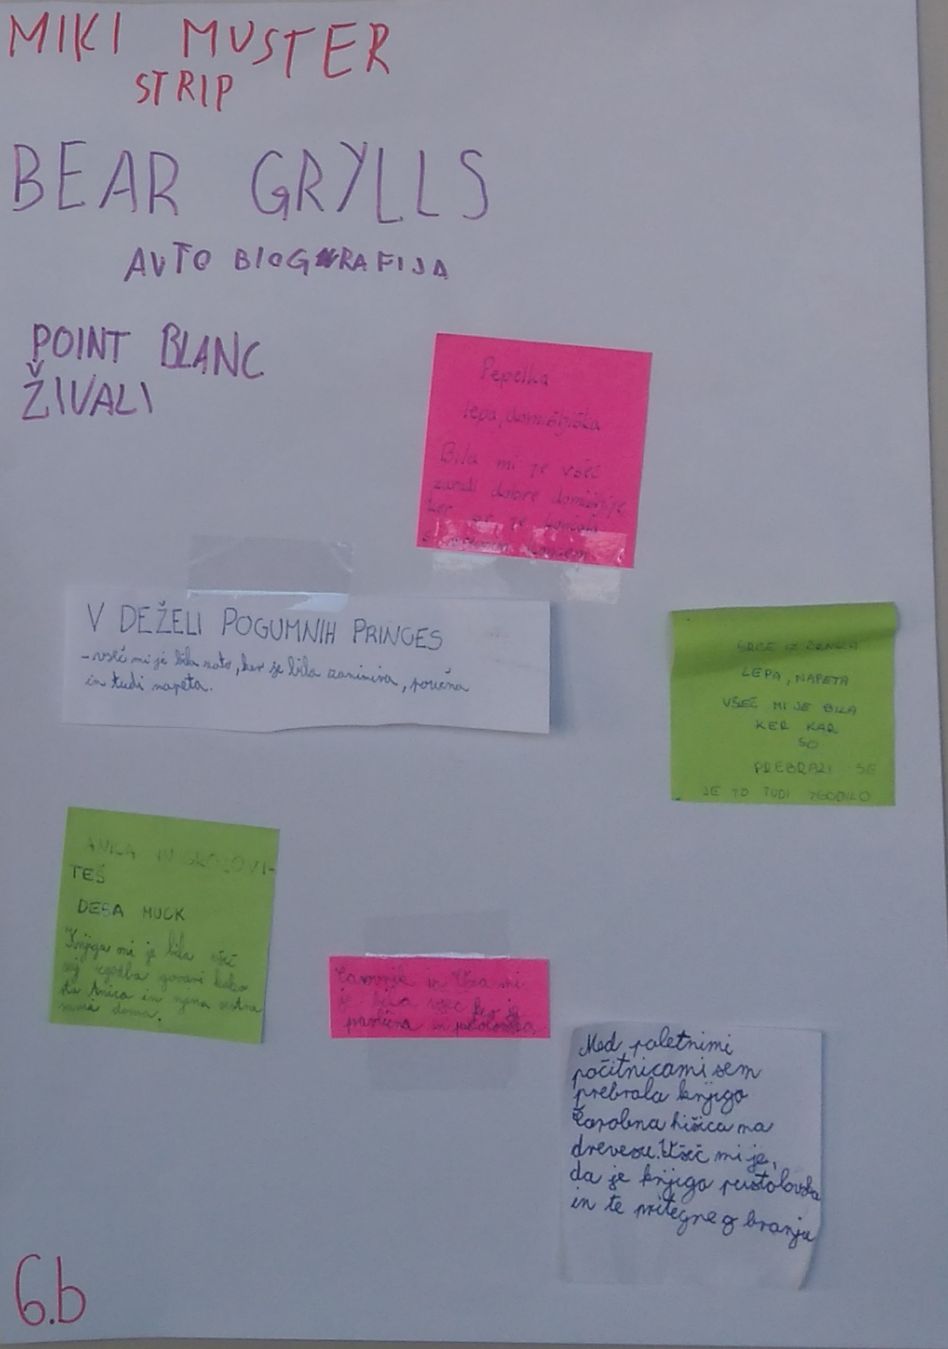 MIKI MUSTER
STRIP
BEAR GRYLLS
AVTO BIOGRAFIJA
POINT BLANC
ŽIVALI
Pepelka
lepa, domišljiška
Bila mi je všeč
zaradi dobre domišljije
ker se je končala
koncem
V DEŽELI POGUMNIH PRINCES
-všeč mi je bila zato, ker je bila zanimiva, poučna
in tudi napeta.
SRCE IZ
LEPA, NAPETA
VŠEČ MI JE BILA
KER KAR
SO
PREBRALI SE
JE TO TUDI ZGODILO
ANICA IN
TEŠ
DESA MUCK
Knjiga mi je bila všeč
zgodba govori kako
sta Anica in njena sestra
sami doma.
in Uša mi
je bila všeč ker je
poučna in pustolovska.
Med poletnimi
počitnicami sem
prebrala knjigo
Čarobna hišica na
drevesu. Všeč mi je,
da je knjiga pustolovska
in te pritegne q branju
6.b